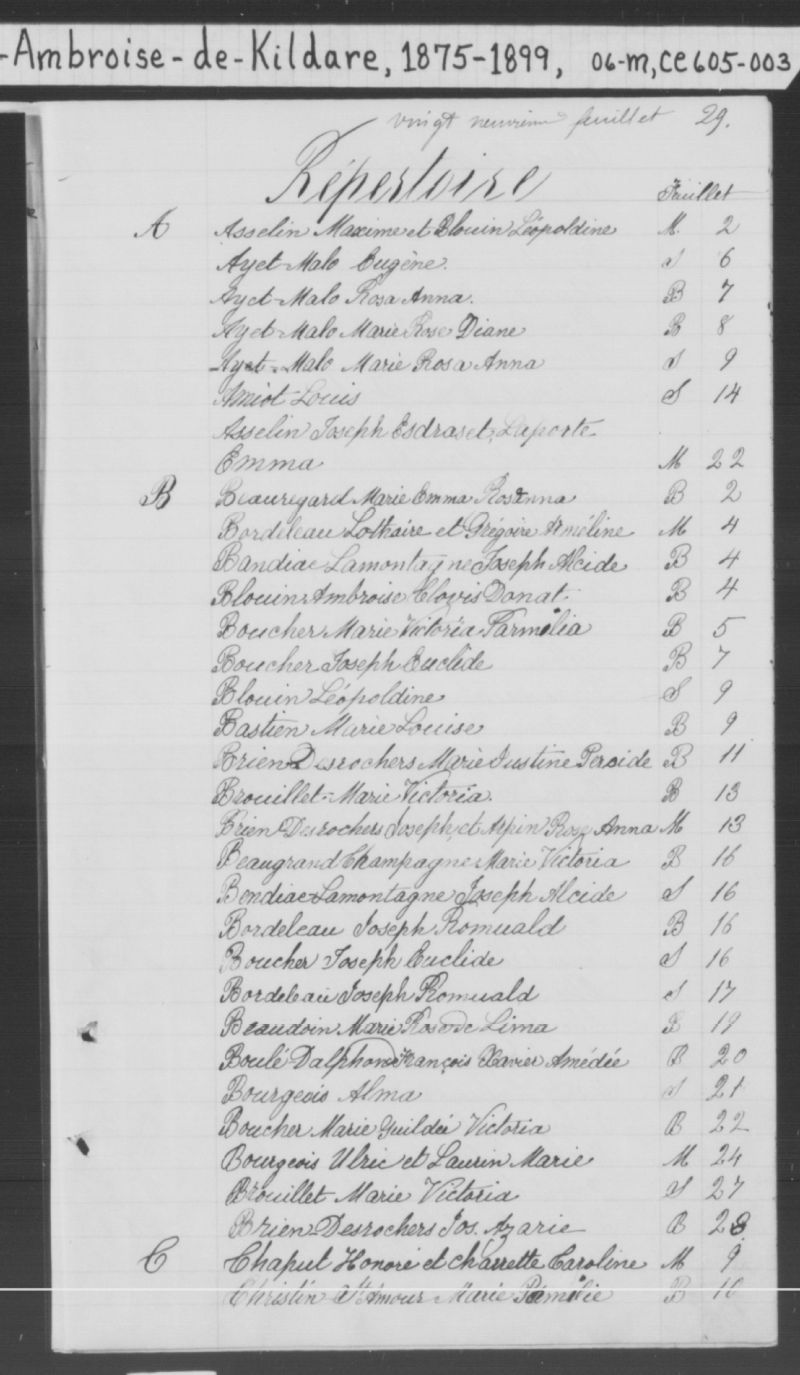 -Ambroise-de-Kildare, 1875-1899, 06-M, CE605-003
vingt neuvième feuillet 29.
Répertoire
Feuillet
A Asselin Maxime et Blouin Léopoldine M. 2
Ayet-Malo Eugène. S 6
Ayet-Malo Rosa Anna. B 7
Ayet-Malo Marie Rose Diane B 8
Ayet-Malo Marie Rosa Anna S 9
Amiot Louis S 14
Asselin Joseph Esdras et Laporte
Emma M 22
B Beauregard Marie Emma Rosanna B 2
Bordeleau Lothaire et Grégoire Améline M 4
Bandiac Lamontagne Joseph Alcide B 4
Blouin Ambroise Clovis Donat. B 4
Boucher Marie Victoria Parmélia B 5
Boucher Joseph Euclide B 7
Blouin Léopoldine S 9
Bastien Marie Louise B 9
Brien Desrochers Marie Justine Perside B 11
Brouillet-Marie Victoria. B 13
Brien Desrochers Joseph et Arpin Rose Anna M 13
Beaugrand Champagne Marie Victoria B 16
Bendiac Lamontagne Joseph Alcide S 16
Bordeleau Joseph Romuald B 16
Boucher Joseph Euclide S 16
Bordeleau Joseph Romuald S 17
Beaudoin Marie Rose de Lima B 19
Boulé Dalphond François Xavier Amédée B 20
Bourgeois Alma S 21
Boucher Marie Victoria B 22
Bourgeois Ulric et Laurin Marie M 24
Brouillet Marie Victoria S 27
Brien-Desrochers Jos. Azarie B 28
C Chaput Honoré et Charrette Caroline M 9
Christin St Amour Marie B 10